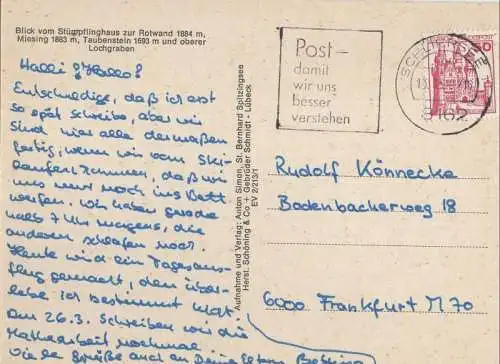 Blick vom Stümpflinghaus zur Rotwand 1884 m,
Miesing 1883 m, Taubenstein 1693 m und oberer
Lochgraben
Halli Hallo!
Entschuldige, daß ich erst
so spät schreibe, aber wir
sind hier alle dermaßen
fertig, wenn wir vom Ski-
laufen kommen, daß wir
uns nur noch ins Bett
werfen. Wir haben gerade
halb 7 Uhr morgens, die
anderen schlafen noch.
Heute wird ein Tagesaus-
flug gemacht, den über-
lebe ich bestimmt nicht.
Am 26.3. schreiben wir die
Mathearbeit nochmal.
Viele Grüße auch an Deine Eltern
Aufnahme und Verlag: Anton Simon, St. Bernhard Spitzingsee
Herst. Schöning & Co + Gebrüder Schmidt - Lübeck
EV 2/213/1
Post-
damit
wir uns
besser
verstehen
SCHLIERSEE
8162
50
Rudolf Könnecke
Bodenbacherweg 18
6000 Frankfurt M 70